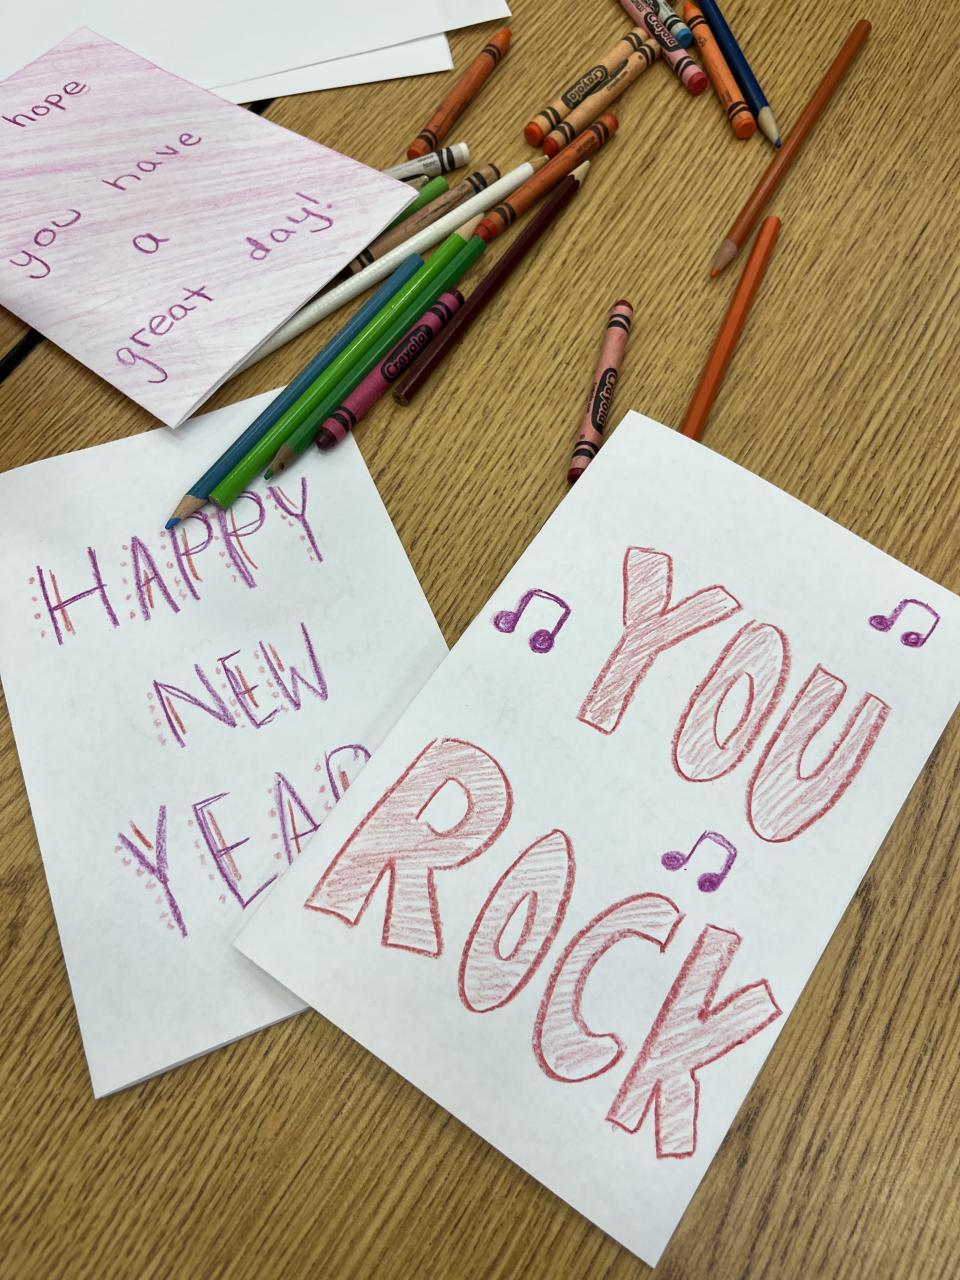 hope
you have
a
great day!
HAPPY
NEW
YEAR
YOU
ROCK
Crayola
Crayola
Crayola
Crayola